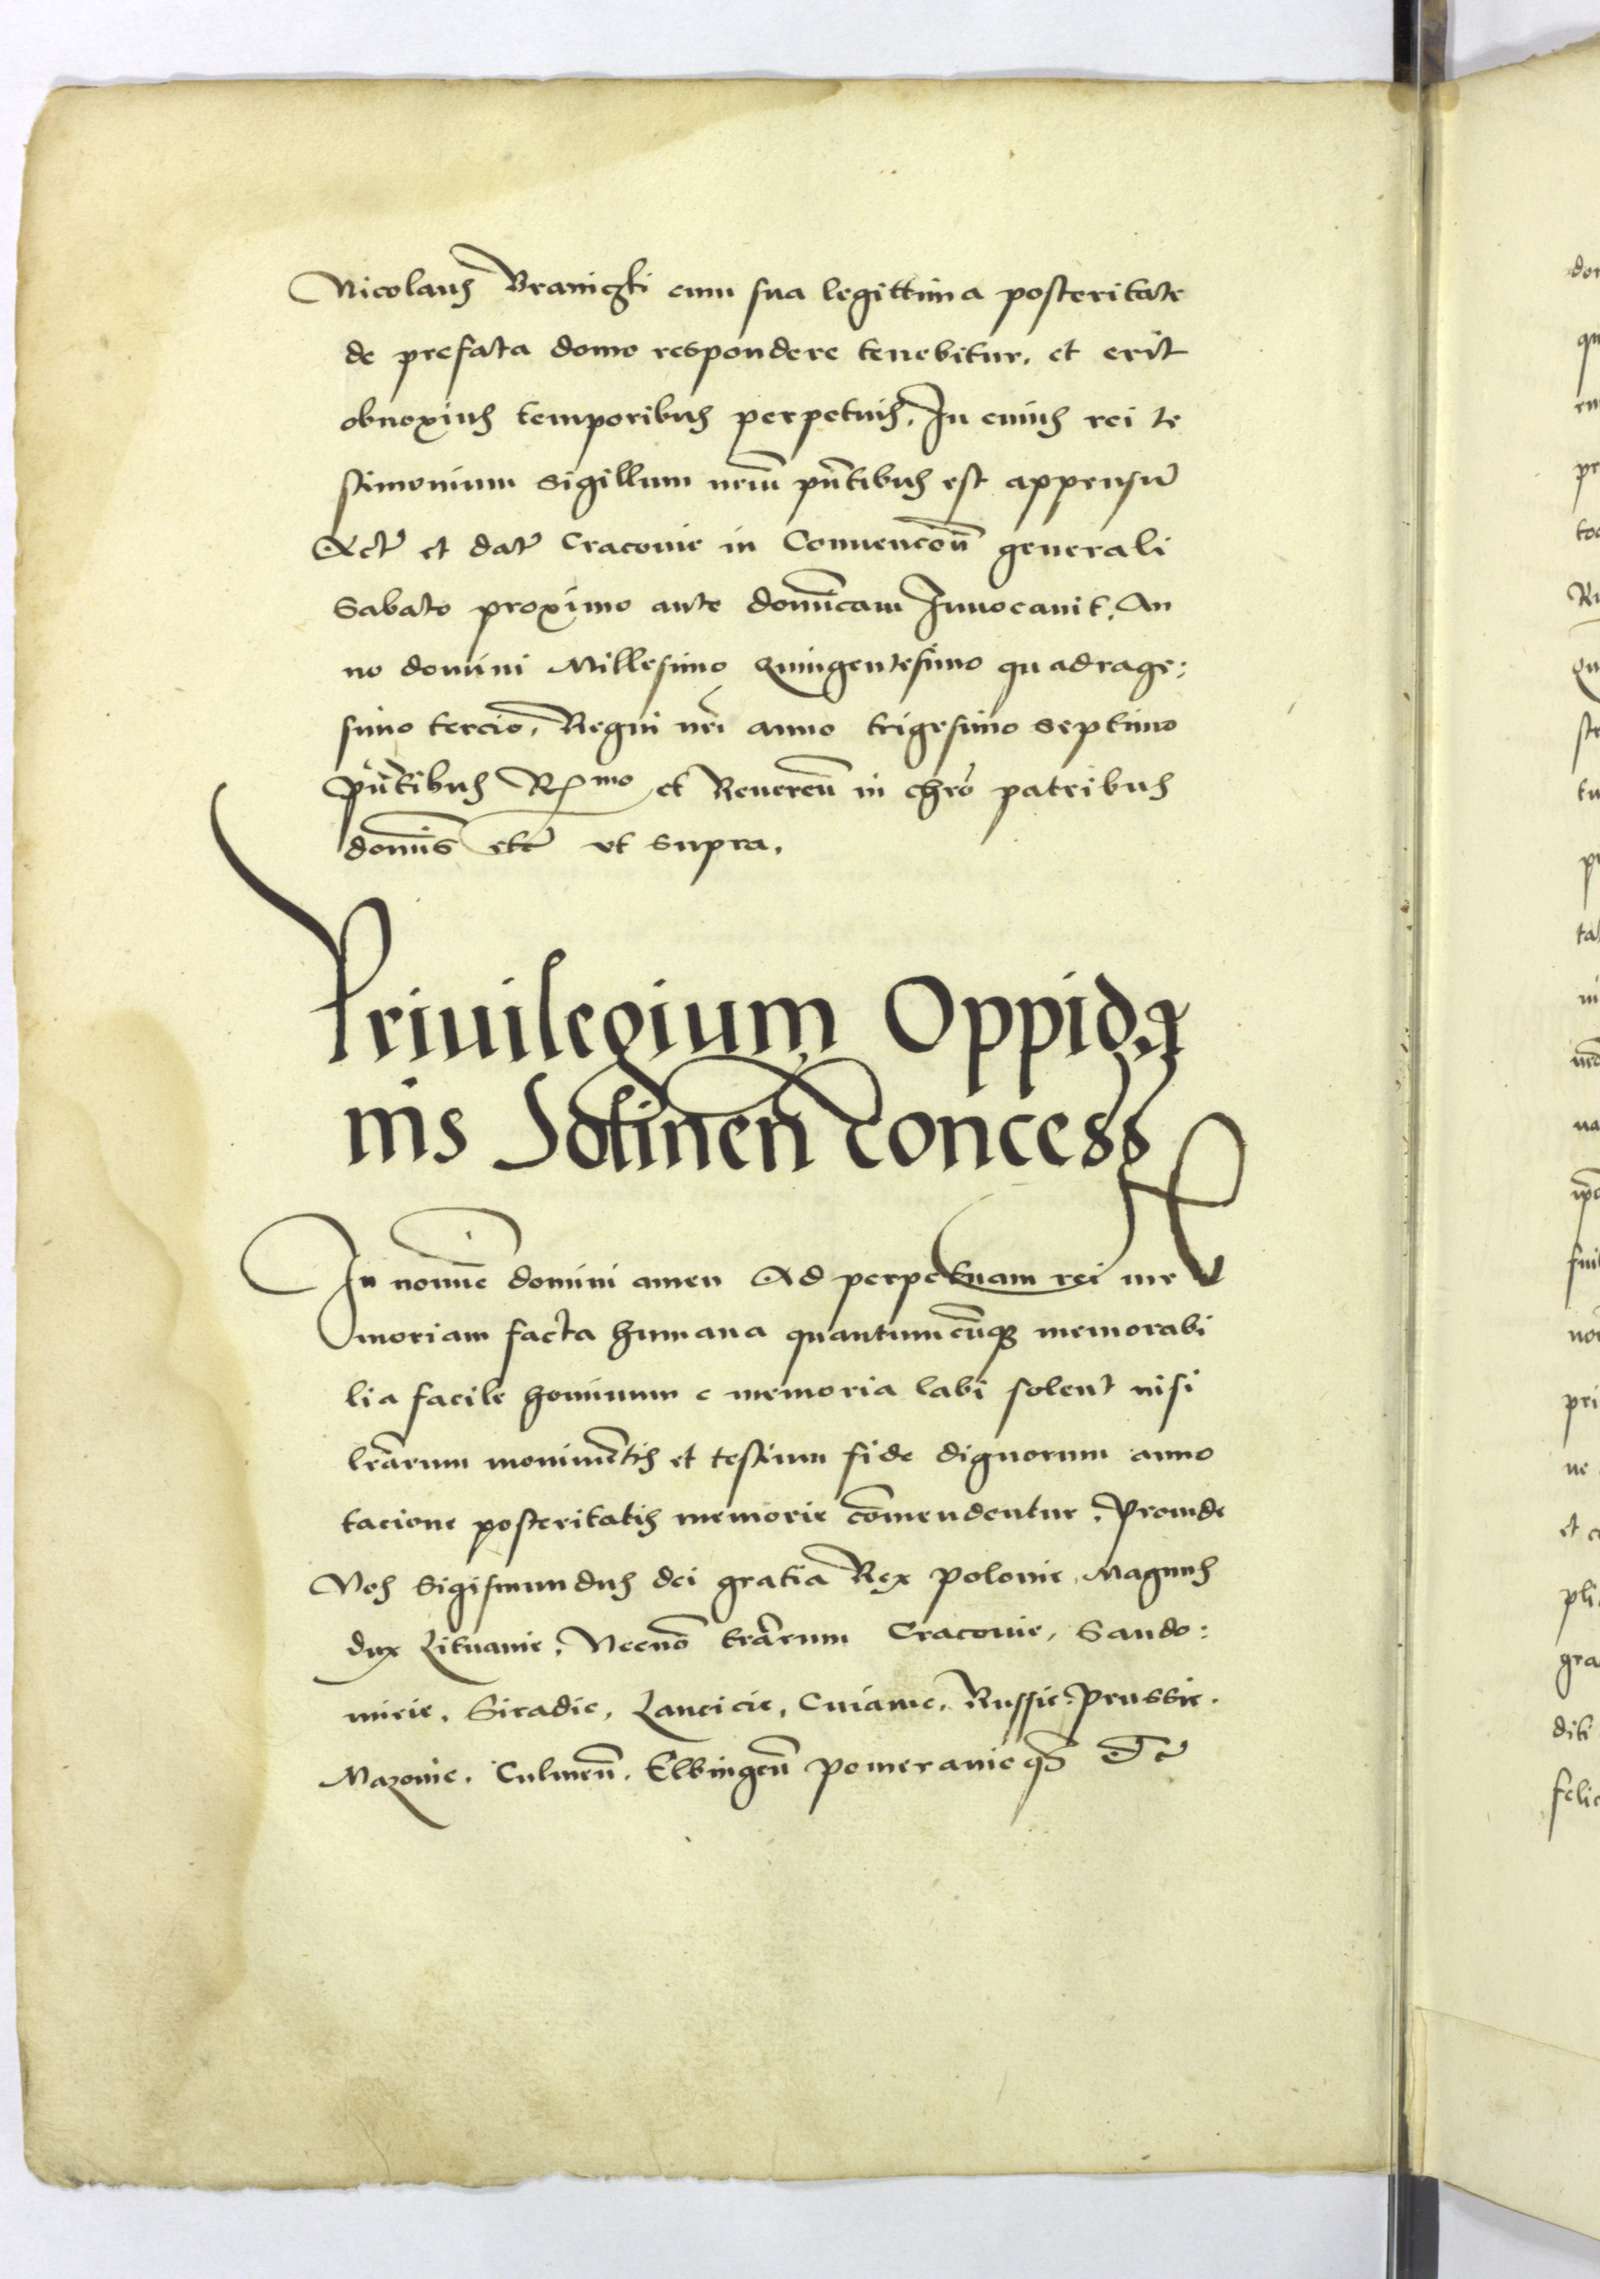 Nicolaus Braniczki cum sua legittima posteritate
de prefata domo respondere tenebitur. et erit
obnoxius temporibus perpetuis. In cuius rei te
stimonium sigillum nrm̄ pn̄tibus est appensum̄
Act̄ et dat̄ Cracovie in Conuencōn̄ generali
Sabato proximo ante domīcam Inuocauit. An
no domini Millesimo Quingentesimo quadrage:
simo tercio. Regni nrī anno trigesimo septimo
Pn̄tibus R^mo et Reueren̄ in chrō patribus
domīs etc̄ vt supra.
Priuilegium Oppida
nis concess
In nomīe domini amen Ad perpetuam rei me
moriam facta humana quantumcūq memorabi
lia facile hominum e memoria labi solent nisi
lrārum monimētis et testium fide dignorum anno
tacione posteritatis memorie cōmendentur. Proinde
Nos Sigismundus dei gratia Rex Polonie. Magnus
dux Lituanie. Necnō trārum Cracouie. Sando:
mirie. Siradie. Lancicie. Cuiauie. Russie. Prussie.
Mazouie. Culmen̄. Elbingen̄ Pomeranieq̄